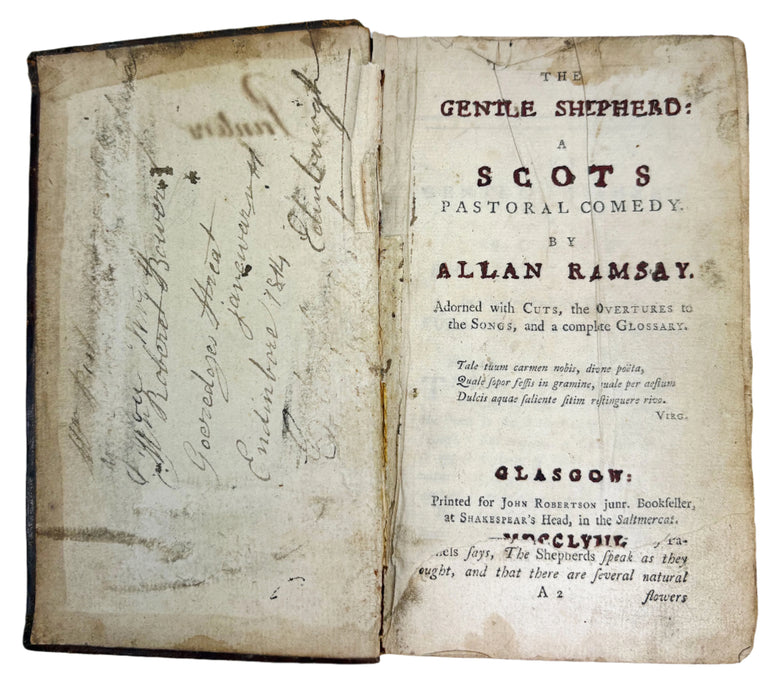 Painters
Robert Bower
Goeredges Street
janeuary
Endinbore 1814
Edinbourgh
THE
GENTLE SHEPHERD:
A
SCOTS
PASTORAL COMEDY.
BY
ALLAN RAMSAY.
Adorned with CUTS, the OVERTURES to
the SONGS, and a complete GLOSSARY.
Tale tuum carmen nobis, divine poëta,
Quale ſopor feſſis in gramine, quale per aeſtum
Dulcis aquae ſaliente ſitim reſtinguere rivo.
VIRG.
GLASGOW:
Printed for JOHN ROBERTSON junr. Bookſeller,
at SHAKESPEAR'S Head, in the Saltmercat.
MDCCLVIII.
ſays, The Shepherds ſpeak as they
ought, and that there are ſeveral natural
A 2 flowers